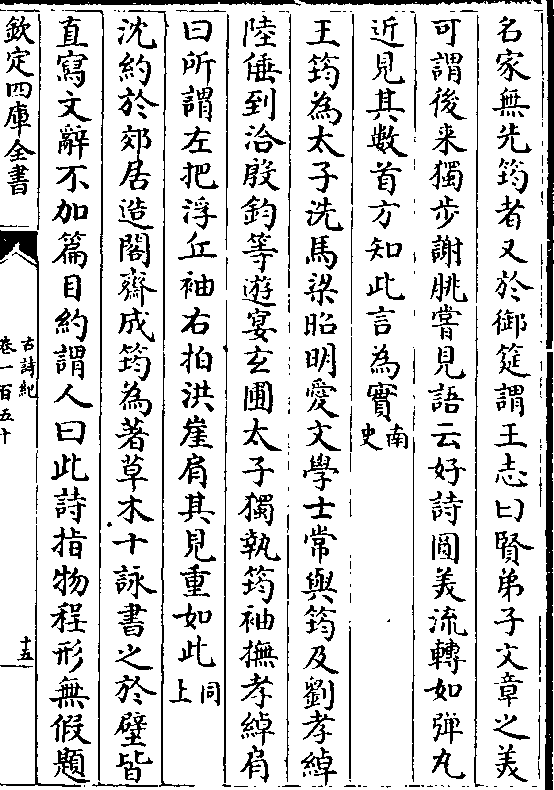 名家無先筠者又於御筵謂王志曰賢弟子文章之美
可謂後来獨步謝朓嘗見語云好詩圓美流轉如弹丸
近見其數首方知此言為實南史
王筠為太子洗馬梁昭明愛文學士常與筠及劉孝綽
陸倕到洽殷鈞等遊宴玄圃太子獨執筠袖撫孝綽肩
曰所謂左把浮丘袖右拍洪崖肩其見重如此同上
沈約於郊居造閣齋成筠為著草木十詠書之於壁皆
直寫文辭不加篇目約謂人曰此詩指物程形無假題
欽定四庫全書
古詩紀
卷一百五十
十五